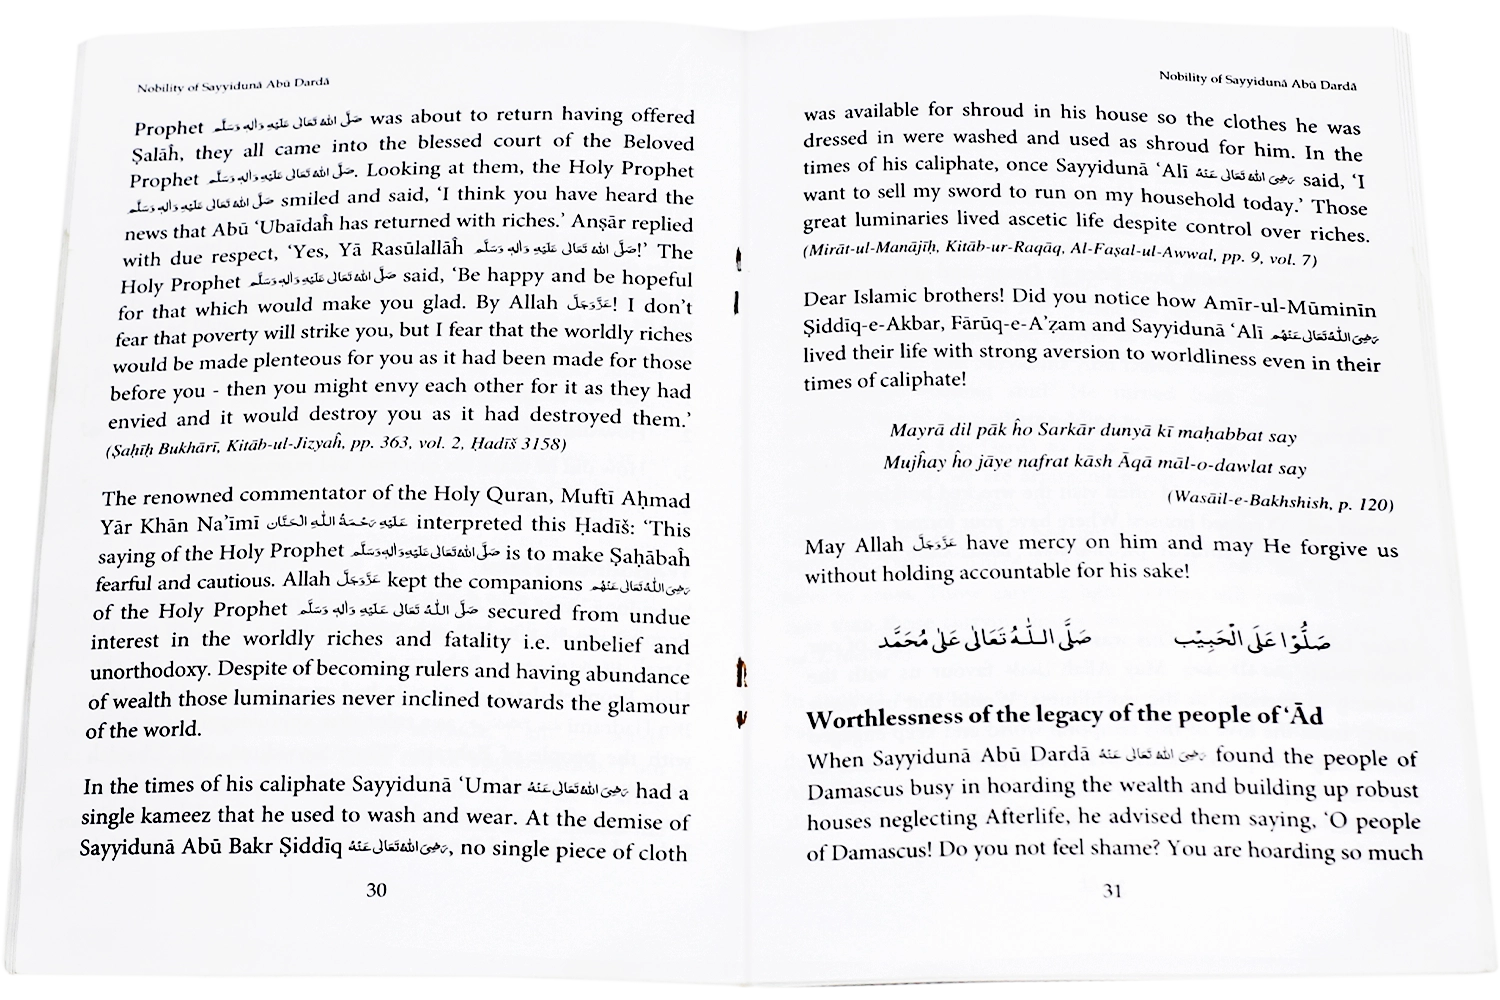 Nobility of Sayyidunā Abū Dardā
Prophet صَلَّى اللهُ تَعَالٰى عَلَيْهِ وَاٰلِهٖ وَسَلَّم was about to return having offered
Ṣalāĥ, they all came into the blessed court of the Beloved
Prophet صَلَّى اللهُ تَعَالٰى عَلَيْهِ وَاٰلِهٖ وَسَلَّم. Looking at them, the Holy Prophet
صَلَّى اللهُ تَعَالٰى عَلَيْهِ وَاٰلِهٖ وَسَلَّم smiled and said, ‘I think you have heard the
news that Abū ‘Ubaīdaĥ has returned with riches.’ Anṣār replied
with due respect, ‘Yes, Yā Rasūlallāĥ صَلَّى اللهُ تَعَالٰى عَلَيْهِ وَاٰلِهٖ وَسَلَّم!’ The
Holy Prophet صَلَّى اللهُ تَعَالٰى عَلَيْهِ وَاٰلِهٖ وَسَلَّم said, ‘Be happy and be hopeful
for that which would make you glad. By Allah عَزَّوَجَلَّ! I don’t
fear that poverty will strike you, but I fear that the worldly riches
would be made plenteous for you as it had been made for those
before you - then you might envy each other for it as they had
envied and it would destroy you as it had destroyed them.’
(Ṣaḥīḥ Bukhārī, Kitāb-ul-Jizyaĥ, pp. 363, vol. 2, Ḥadīš 3158)
The renowned commentator of the Holy Quran, Muftī Aḥmad
Yār Khān Na’īmī عَلَيْهِ رَحْمَةُ اللّٰهِ الْحَنَّان interpreted this Ḥadīš: ‘This
saying of the Holy Prophet صَلَّى اللهُ تَعَالٰى عَلَيْهِ وَاٰلِهٖ وَسَلَّم is to make Ṣaḥābaĥ
fearful and cautious. Allah عَزَّوَجَلَّ kept the companions رَضِىَ اللّٰهُ تَعَالٰى عَنْهُم
of the Holy Prophet صَلَّى اللّٰهُ تَعَالٰى عَلَيْهِ وَاٰلِهٖ وَسَلَّم secured from undue
interest in the worldly riches and fatality i.e. unbelief and
unorthodoxy. Despite of becoming rulers and having abundance
of wealth those luminaries never inclined towards the glamour
of the world.
In the times of his caliphate Sayyidunā ‘Umar رَضِىَ اللهُ تَعَالٰى عَنْهُ had a
single kameez that he used to wash and wear. At the demise of
Sayyidunā Abū Bakr Ṣiddīq رَضِىَ اللهُ تَعَالٰى عَنْهُ, no single piece of cloth
30
Nobility of Sayyidunā Abū Dardā
was available for shroud in his house so the clothes he was
dressed in were washed and used as shroud for him. In the
times of his caliphate, once Sayyidunā ‘Alī رَضِىَ اللهُ تَعَالٰى عَنْهُ said, ‘I
want to sell my sword to run on my household today.’ Those
great luminaries lived ascetic life despite control over riches.
(Mirāt-ul-Manājīḥ, Kitāb-ur-Raqāq, Al-Faṣal-ul-Awwal, pp. 9, vol. 7)
Dear Islamic brothers! Did you notice how Amīr-ul-Mūminīn
Ṣiddīq-e-Akbar, Fārūq-e-A’ẓam and Sayyidunā ‘Alī رَضِىَ اللّٰهُ تَعَالٰى عَنْهُم
lived their life with strong aversion to worldliness even in their
times of caliphate!
Mayrā dil pāk ĥo Sarkār dunyā kī maḥabbat say
Mujĥay ĥo jāye nafrat kāsh Āqā māl-o-dawlat say
(Wasāil-e-Bakhshish, p. 120)
May Allah عَزَّوَجَلَّ have mercy on him and may He forgive us
without holding accountable for his sake!
صَلُّوْا عَلَى الْحَبِيْب صَلَّى اللّٰهُ تَعَالٰى عَلٰى مُحَمَّد
Worthlessness of the legacy of the people of ‘Ād
When Sayyidunā Abū Dardā رَضِىَ اللهُ تَعَالٰى عَنْهُ found the people of
Damascus busy in hoarding the wealth and building up robust
houses neglecting Afterlife, he advised them saying, ‘O people
of Damascus! Do you not feel shame? You are hoarding so much
31